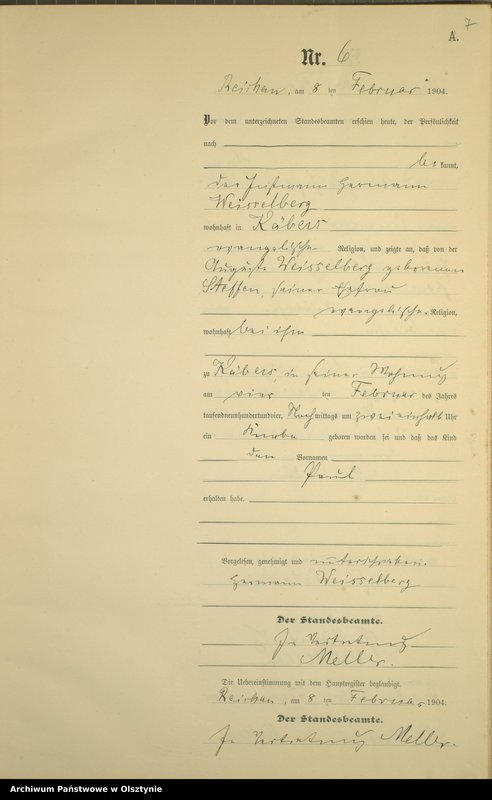 7
A.
Nr. 6
Reichau, am 8 ten Februar 1904.
Vor dem unterzeichneten Standesbeamten erschien heute, der Persönlichkeit
nach
be kannt,
der Instmann Hermann
Weisselberg
wohnhaft in Käbers
evangelische Religion, und zeigte an, daß von der
Auguste Weisselberg geborenen
Steffen, seiner Ehefrau
evangelische Religion,
wohnhaft bei ihm
zu Käbers, in seiner Wohnung
am vier ten Februar des Jahres
tausendneunhundertundvier, Nachmittags um zwei einhalb Uhr
ein Knabe geboren worden sei und daß das Kind
den Vornamen
Paul
erhalten habe.
Vorgelesen, genehmigt und unterschrieben.
Hermann Weisselberg
Der Standesbeamte.
In Vertretung
Meller.
Die Uebereinstimmung mit dem Hauptregister beglaubigt.
Reichau, am 8 ten Februar 1904.
Der Standesbeamte.
In Vertretung Meller.
Archiwum Państwowe w Olsztynie